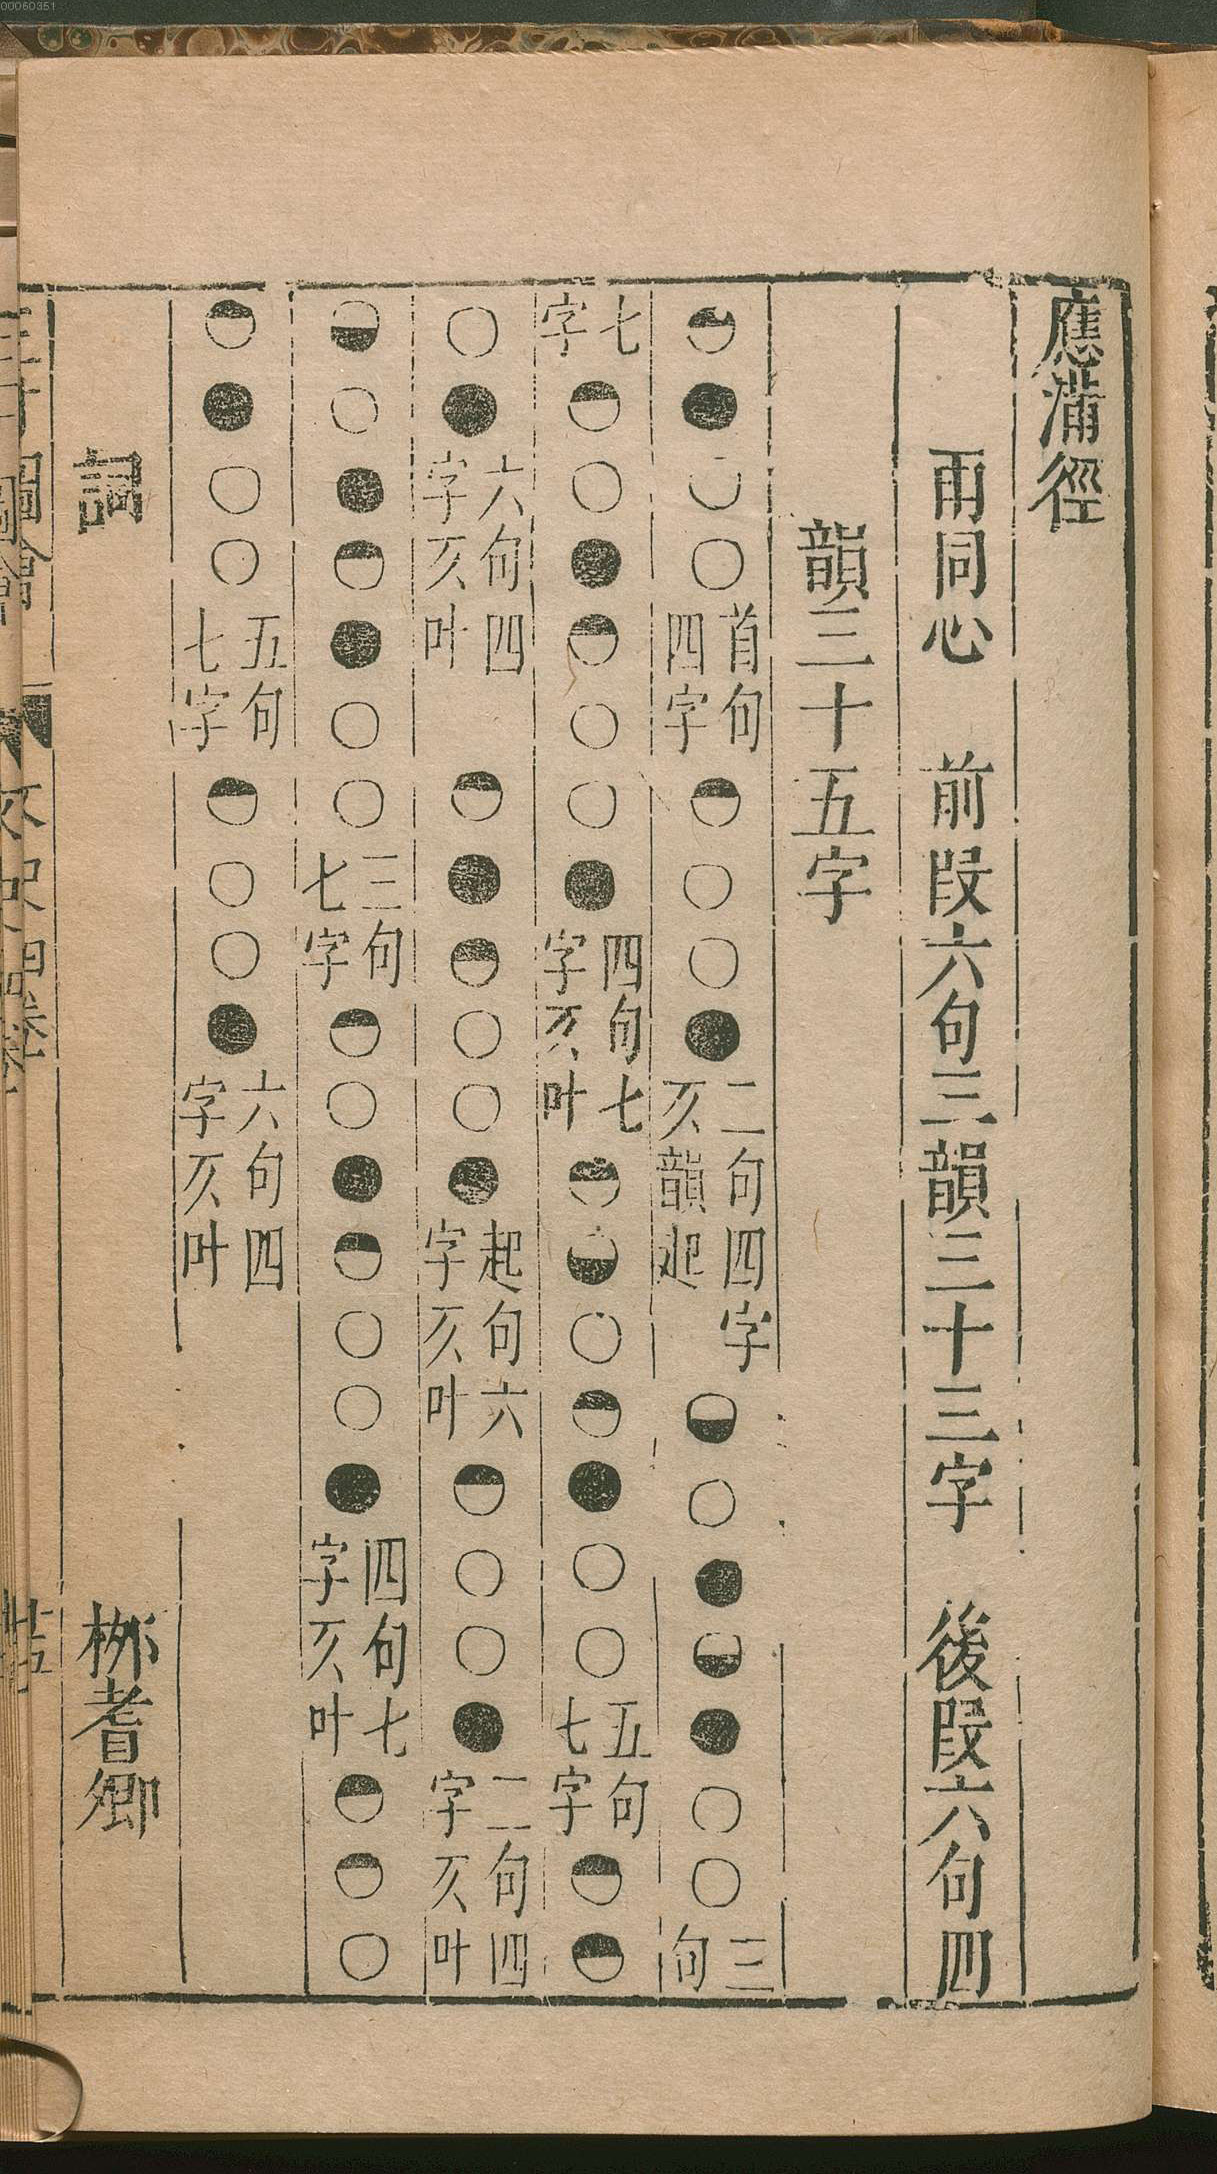 00060351
應滿徑
雨同心　前段六句三韻三十三字　後段六句四
韻三十五字
◓●○○首句四字◓○○●二句四字仄韻起◒○●◒●○○三句
七字◓○●◓○○●四句七字仄叶◓◒○◓●○○五句七字◓◓
○●六句四字仄叶◓●◓○○●起句六字仄叶◓○○●二句四字仄叶
◒○●◓●○○三句七字◓○●◓○○●四句七字仄叶◓◓○
◓●○○五句七字◓○○●六句四字仄叶
詞　栁耆卿